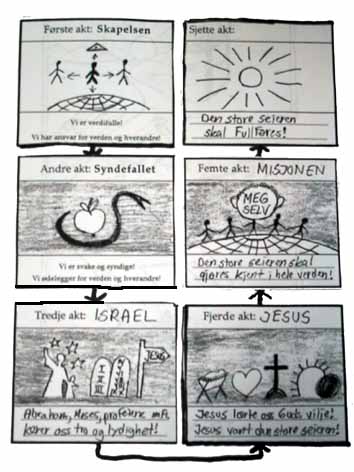 Første akt: Skapelsen
Vi er verdifulle!
Vi har ansvar for verden og hverandre!
Andre akt: Syndefallet
Vi er svake og syndige!
Vi ødelegger for verden og hverandre!
Tredje akt: ISRAEL
I
II
III
JESUS
Abraham, Moses, profetene m.fl.
lærer oss tro og lydighet!
Fjerde akt: JESUS
Jesus lærte oss Guds vilje!
Jesus vant den store seieren!
Femte akt: MISJONEN
MEG
SELV
Den store seieren skal
gjøres kjent i hele verden!
Sjette akt:
Den store seieren
skal Fullføres!